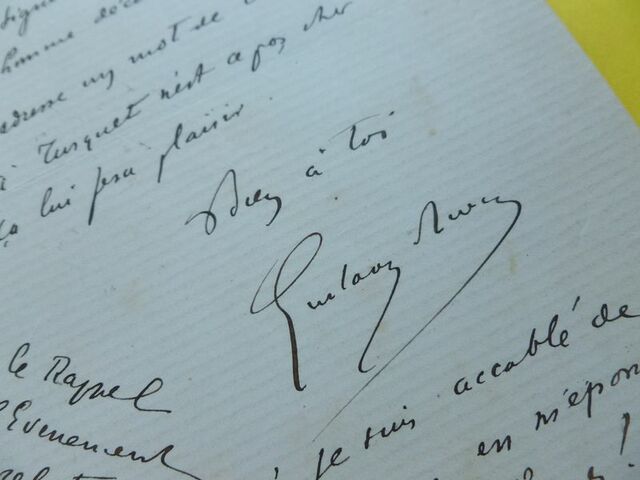 homme déc
adresse un mot de
à Turquet n'est a pas cher
ça lui fera plaisir.
Bien à toi
Gustave
le Rappel
l'Evenement
je suis accablé de
en m'épon